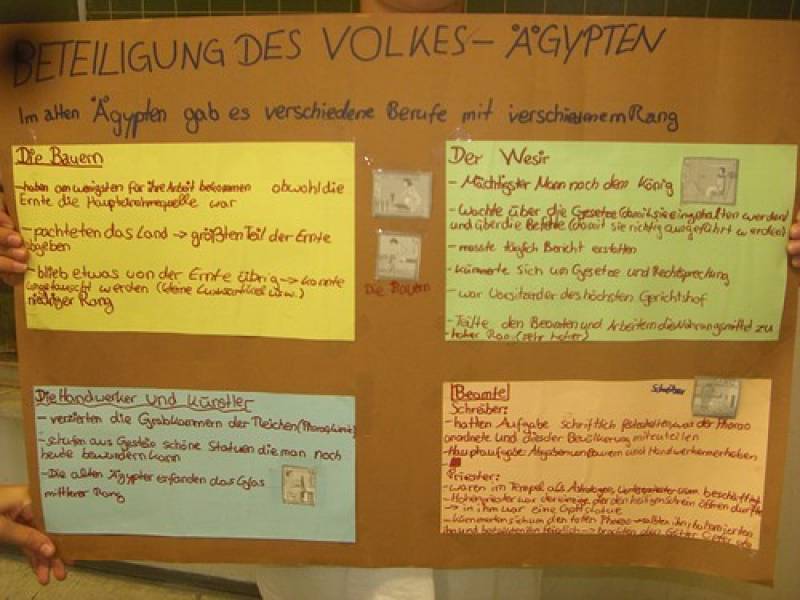 BETEILIGUNG DES VOLKES - ÄGYPTEN
Im alten Ägypten gab es verschiedene Berufe mit verschiedenem Rang
Die Bauern
- haben am wenigsten für ihre Arbeit bekommen obwohl die
Ernte die Haupteinnahmequelle war
- pachteten das Land → größten Teil der Ernte
abgeben
- blieb etwas von der Ernte übrig → konnte
eingetauscht werden (kleine Luxusartikel usw.)
niedriger Rang
Die Bauern
Der Wesir
- Mächtigster Mann nach dem König
- Wachte über die Gesetze (damit sie eingehalten werden)
und über die Befehle (damit sie richtig ausgeführt werden)
- musste täglich Bericht erstatten
- kümmerte sich um Gesetze und Rechtsprechung
- war Vorsitzender des höchsten Gerichtshof
- Teilte den Beamten und Arbeitern die Nahrungsmittel zu
hoher Rang (sehr hoher)
Die Handwerker und Künstler
- verzierten die Grabkammern der Reichen (Pharao,
- schufen aus Gestein schöne Statuen die man noch
heute bewundern kann
- Die alten Ägypter erfanden das Glas
mittlerer Rang
Beamte
Schreiber
Schreiber:
- hatten Aufgabe schriftlich festzuhalten, was der Pharao
anordnete und dies der Bevölkerung mitzuteilen
- Hauptaufgabe: Abgaben von Bauern und Handwerkern erheben
-
Priester:
- waren im Tempel als Astrologen, beschäftigt
- Hohepriester war der einzige der den heiligen Schrein öffnen durfte
→ in ihm war eine Gottstatue
- kümmerten sich um den toten Pharao → salbten ihn, balsamierten
ihn und bestatteten ihn → brachten den Götter Opfer